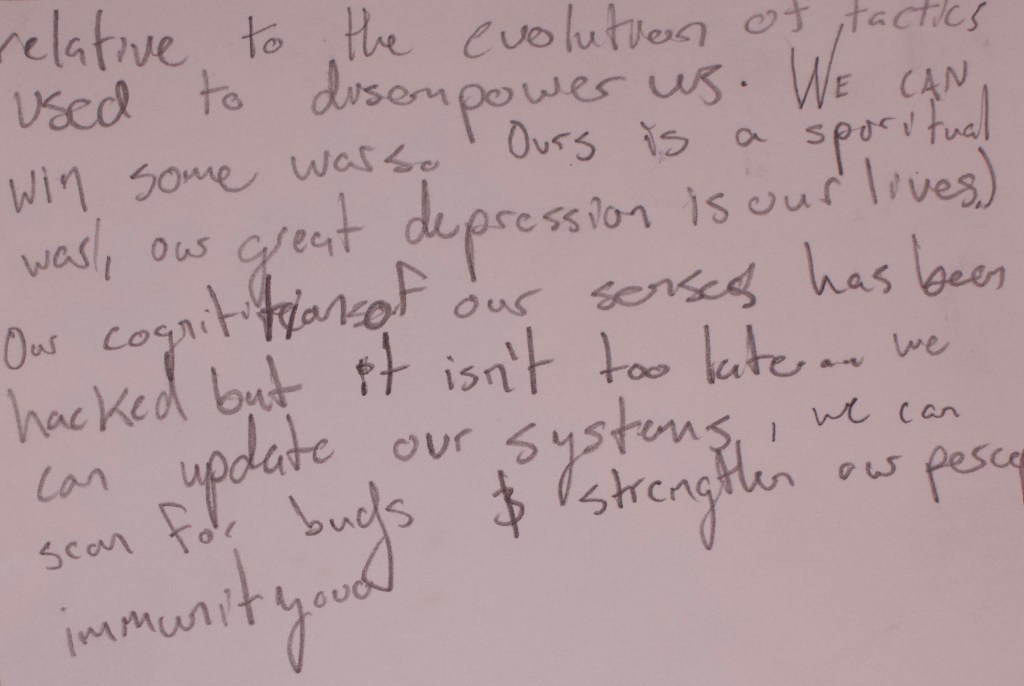 relative to the evolution of tactics
used to disempower us. WE CAN
win some wars. Ours is a spiritual
war, our great depression is our lives.)
Our cognition of our senses has been
hacked but it isn't too late... we
can update our systems, we can
scan for bugs & strengthen our
immunity